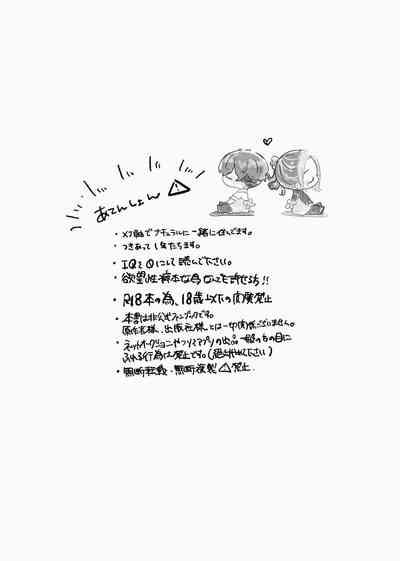 あてんしょん
・メフ軸でナチュラルに一緒に住んでます。
・つきあって1年たちます。
・IQを0にして読んで下さい。
・欲望性癖本な為なんでも許せる方!!
・R18本の為、18歳以下の閲覧禁止
・本書は非公式ファンブックです。
原作者様、出版社様とは一切関係ございません。
・ネットオークションやフリマアプリの出品、一般の方の目に
ふれる行為は禁止です。(
下さい)
・無断転載・無断複製 禁止